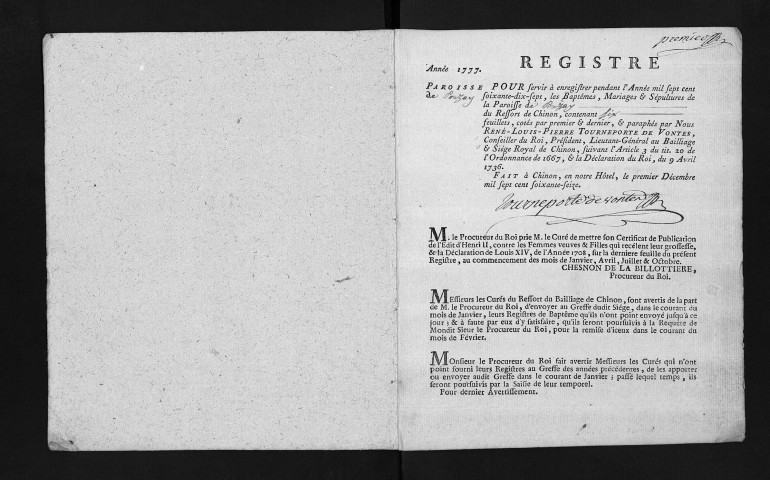 premier
REGISTRE
Année 1777.
PAROISSE
de Pouzay
POUR servir à enregistrer pendant l'Année mil sept cent
soixante-dix-sept, les Baptêmes, Mariages & Sépultures de
la Paroisse de Pouzay
du Ressort de Chinon, contenant six
feuillets, cotés par premier & dernier, & paraphés par Nous
RENÉ-LOUIS-PIERRE TOURNEPORTE DE VONTES,
Conseiller du Roi, Président, Lieutant-Général au Bailliage
& Siége Royal de Chinon, suivant l'Article 3 du tit. 20 de
l'Ordonnance de 1667, & la Déclaration du Roi, du 9 Avril
1736.
FAIT à Chinon, en notre Hôtel, le premier Décembre
mil sept cent soixante-seize.
Tourneporte de vontes
M. le Procureur du Roi prie M. le Curé de mettre son Certificat de Publication
de l'Edit d'Henri II, contre les Femmes veuves & Filles qui recèlent leur grossesse,
& la Déclaration de Louis XIV, de l'Année 1708, sur la derniere feuille du présent
Registre, au commencement des mois de Janvier, Avril, Juillet & Octobre.
CHESNON DE LA BILLOTTIERE,
Procureur du Roi.
Messieurs les Curés du Ressort du Bailliage de Chinon, sont avertis de la part
de M. le Procureur du Roi, d'envoyer au Greffe dudit Siége, dans le courant du
mois de Janvier, leurs Registres de Baptême qu'ils n'ont point envoyé jusqu'à ce
jour; & à faute par eux d'y satisfaire, qu'ils seront poursuivis à la Requête de
Mondit Sieur le Procureur du Roi, pour la remise d'iceux dans le courant du
mois de Février.
Monsieur le Procureur du Roi fait avertir Messieurs les Curés qui n'ont
point fourni leurs Registres au Greffe des années précédentes, de les apporter
ou envoyer audit Greffe dans le courant de Janvier; passé lequel temps, ils
seront poursuivis par la Saisie de leur temporel.
Pour dernier Avertissement.